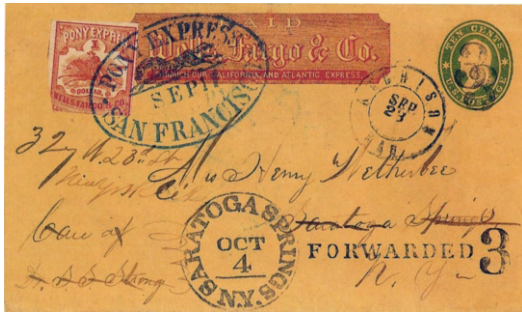 PAID
Wells, Fargo & Co.
THROUGH OUR CALIFORNIA, AND ATLANTIC EXPRESS.
PONY EXPRESS
1
DOLLAR.
WELLS, FARGO & CO.
PONY EXPRESS
SEP 1
SAN FRANCISCO
TEN CENTS
U.S. POSTAGE
ATCHISON
SEP
23
KAN.
32 W. 23d St
New York
Mrs Henry Wetherbee
Care of
Saratoga Springs
N. Y.
SARATOGA SPRINGS. N.Y.
OCT
4
FORWARDED 3